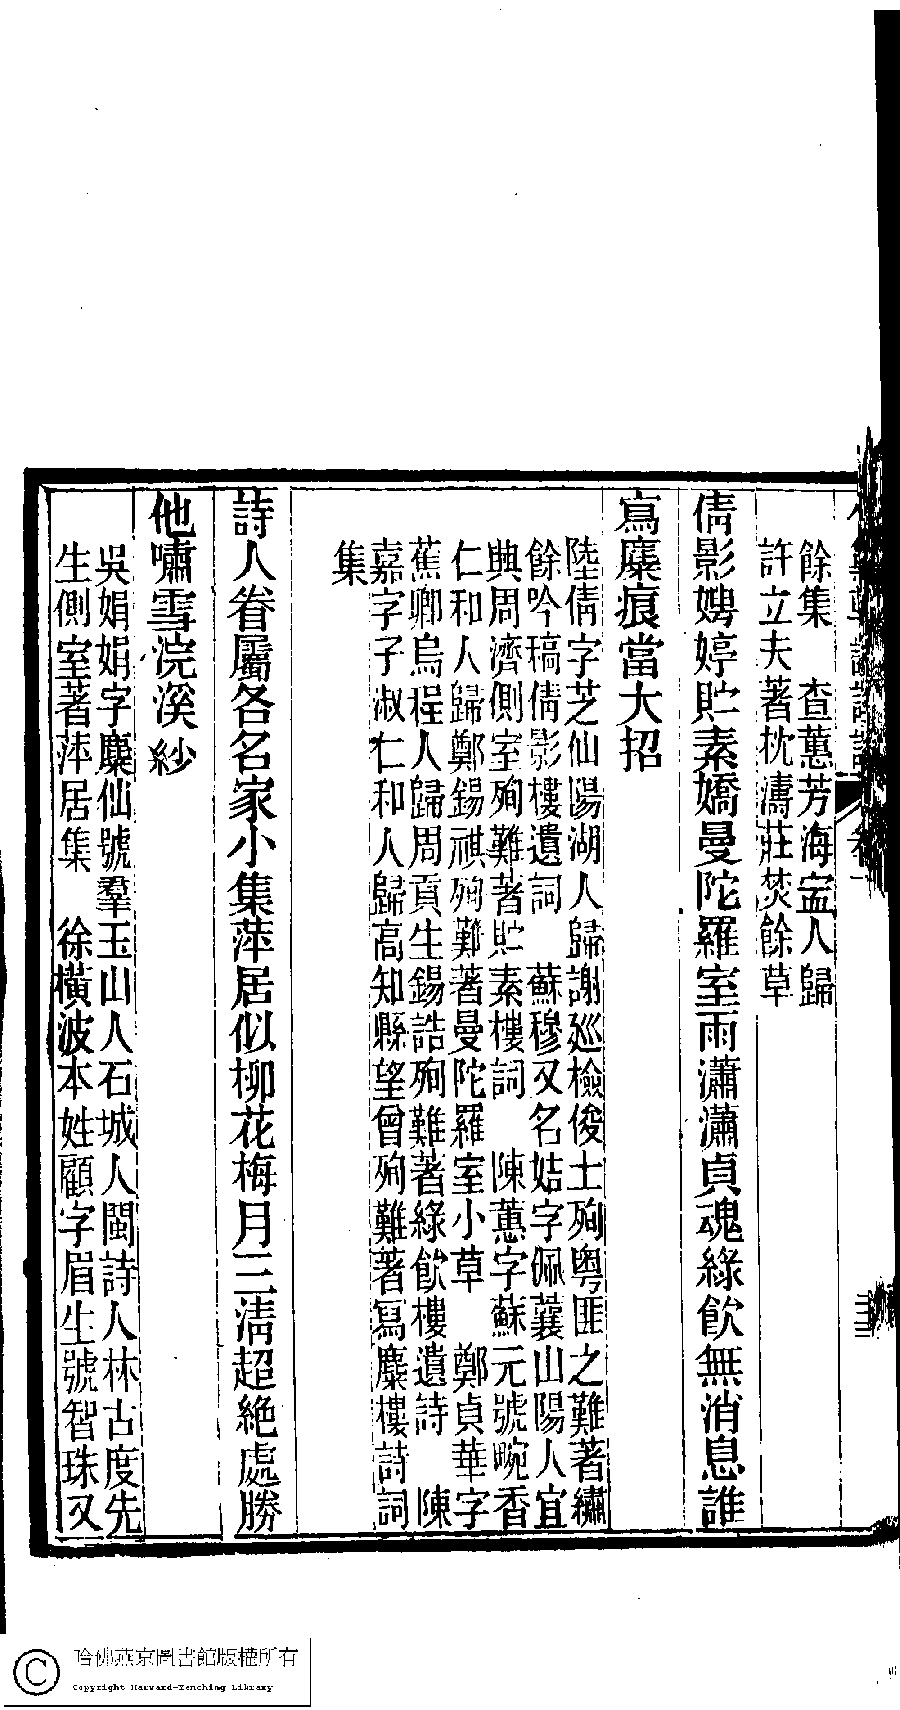 餘集　查蕙芳海寍人歸
許立夫著枕濤莊焚餘草
倩影娉婷貯素嬌曼陀羅室雨瀟瀟貞魂綠飲無消息誰
寫麋痕當大招
陸倩字芝仙陽湖人歸謝廵檢俊士殉粤匪之難著繡
餘吟稿倩影樓遺詞　蘇穆又名姞字佩蘘山陽人宜
興周濟側室殉難著貯素樓詞　陳蕙字蘇元號畹香
仁和人歸鄭錫祺殉難著曼陀羅室小草　鄭貞華字
蕉卿烏程人歸周貢生錫誥殉難著綠飲樓遺詩　陳
嘉字子淑仁和人歸高知縣望曾殉難著寫麋樓詩詞
集
詩人眷屬各名家小集萍居似柳花梅月三淸超絶處勝
他嘯雪浣溪紗
吳娟娟字麋仙號羣玉山人石城人閩詩人林古度先
生側室著萍居集　徐橫波本姓顧字眉生號智珠又
哈佛燕京圖書館版權所有
Copyright Harvard-Yenching Library